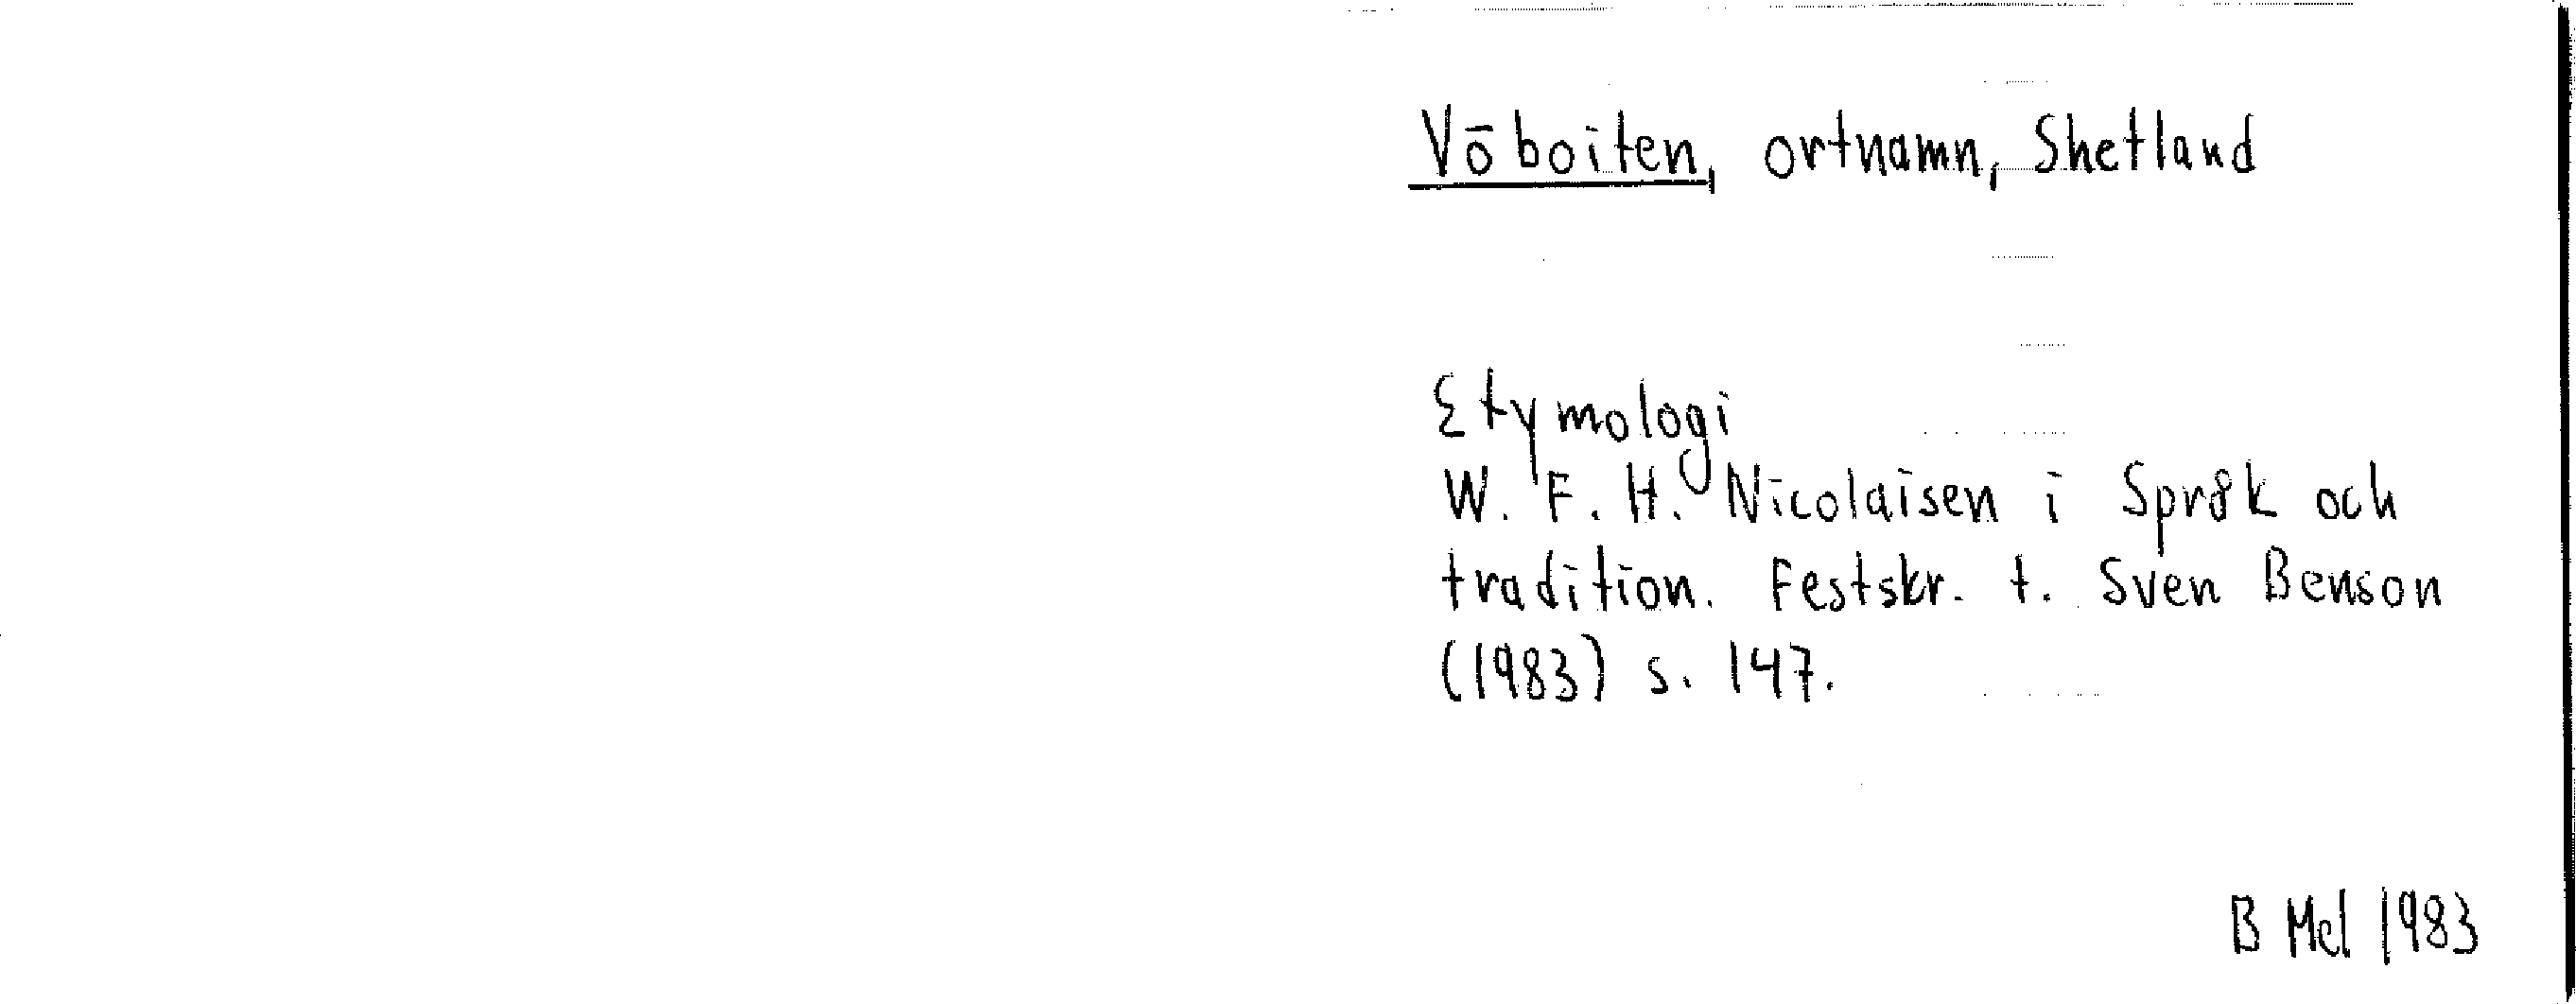 Vōboiten, ortnamn, Shetland
Etymologi
W. F. H. Nicolaisen i Språk och
tradition. Festskr. t. Sven Benson
(1983) s. 147.
B Mel 1983